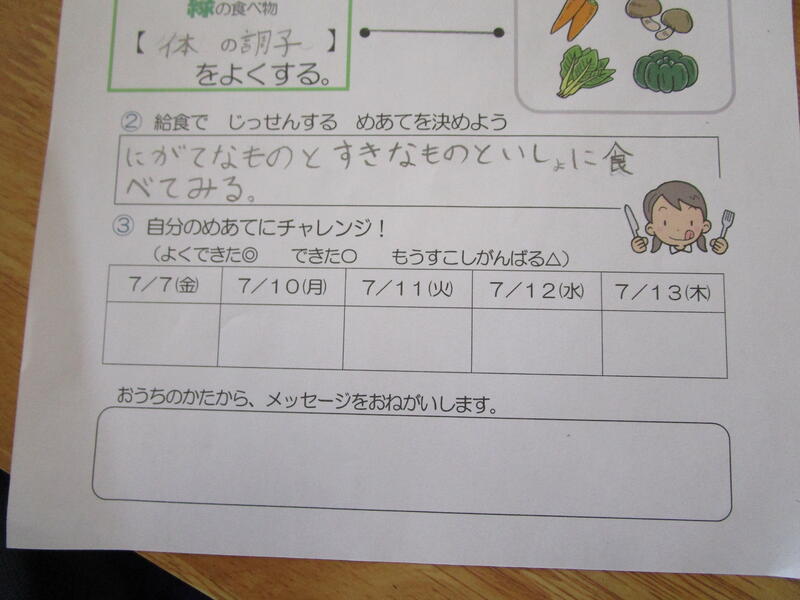 緑の食べ物
【 体 の調子 】
をよくする。
② 給食で じっせんする めあてを決めよう
にがてなものとすきなものといしょに食
べてみる。
③ 自分のめあてにチャレンジ！
（よくできた◎ できた○ もうすこしがんばる△）
7／7(金) 7／10(月) 7／11(火) 7／12(水) 7／13(木)
おうちのかたから、メッセージをおねがいします。